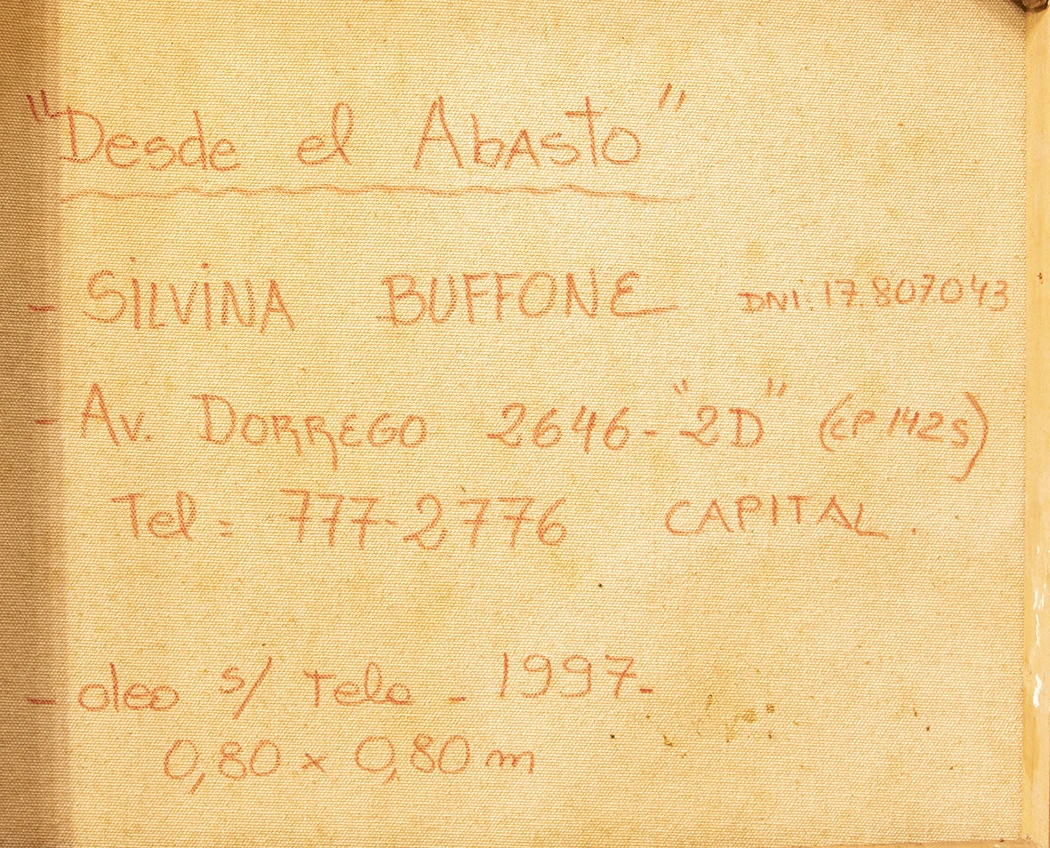 "Desde el Abasto"
- SILVINA BUFFONE DNI. 17.807043
- Av. DORREGO 2646-"2D" (CP 1425)
Tel = 777-2776 CAPITAL.
- oleo s/ Tela - 1997.-
0,80 x 0,80 m